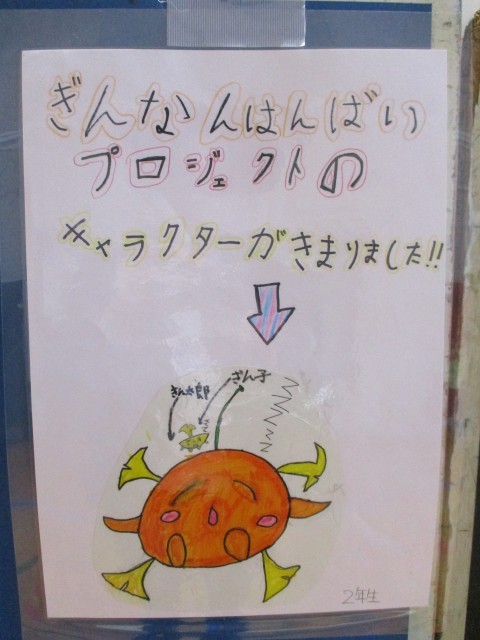 ぎんなんはんばい
プロジェクトの
キャラクターがきまりました!!
ぎん子
ぎん太郎
2年生